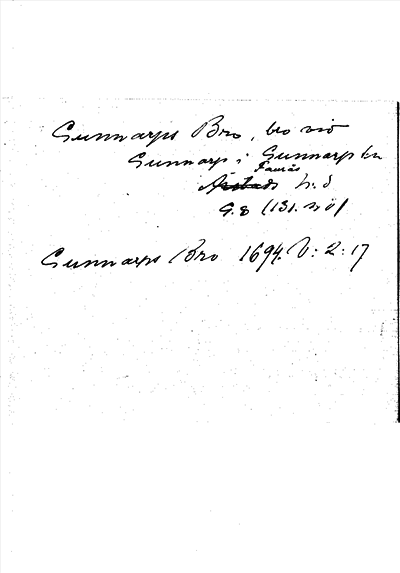 Gunnarps Bro, bro vid
Gunnarp i Gunnarps sn
Faurås
Årstads h. d
G.8 (131. n ö)
Gunnarps Bro 1694. V: 2: 17